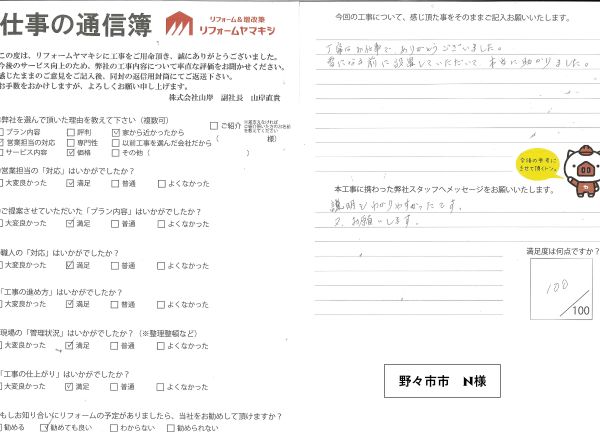 仕事の通信簿
リフォーム&増改築
リフォームヤマキシ
この度は、リフォームヤマキシに工事をご用命頂き、誠にありがとうございました。
今後のサービス向上のため、弊社の工事内容について率直な評価をお聞かせください。
感じたままのご意見をご記入後、同封の返信用封筒にてご返送下さい。
お手数をおかけしますが、よろしくお願い申し上げます。
株式会社山岸 副社長 山岸直貴
弊社を選んで頂いた理由を教えて下さい(複数可)
プラン内容 □評判 ☑家から近かったから
☑営業担当の対応 □専門性 □以前工事を選んだ会社だから
□サービス内容 ☑価格 □その他(
□ご紹介
( 様)
営業担当の「対応」はいかがでしたか?
大変良かった ☑満足 □普通 □よくなかった
ご提案させていただいた「プラン内容」はいかがでしたか?
大変良かった ☑満足 □普通 □よくなかった
職人の「対応」はいかがでしたか?
大変良かった ☑満足 □普通 □よくなかった
「工事の進め方」はいかがでしたか?
大変良かった ☑満足 □普通 □よくなかった
現場の「管理状況」はいかがでしたか?(※整理整頓など)
大変良かった ☑満足 □普通 □よくなかった
「工事の仕上がり」はいかがでしたか?
大変良かった ☑満足 □普通 □よくなかった
もしお知り合いにリフォームの予定がありましたら、当社をお勧めして頂けますか?
勧める ☑勧めても良い □わからない □勧められない
今回の工事について、感じ頂た事をそのままご記入お願いいたします。
丁寧なお仕事で、ありがとうございました。
前に設置していただいて、本当に助かりました。
今後の参考に
させて頂くトン。
本工事に携わった弊社スタッフへメッセージをお願いいたします。
説明もわかりやすかったです。
お願いします。
満足度は何点ですか?
100
/100
野々市市 N様